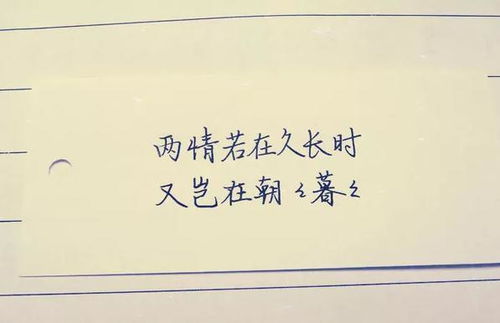 两情若在久长时
又岂在朝〻暮〻